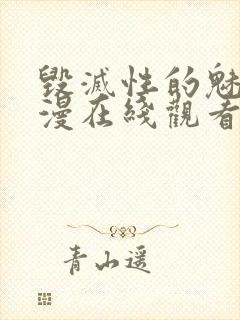 毀滅性的魅
漫在綫觀看
青山遥